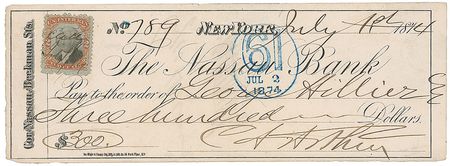 No. 789 New York, July 1st 1874
61
JUL 2
1874
The Nassau Bank
Cor. Nassau & Beekman Sts.
Pay to the order of Geo. Hillier
Three hundred Dollars.
$300.
C. A. Arthur